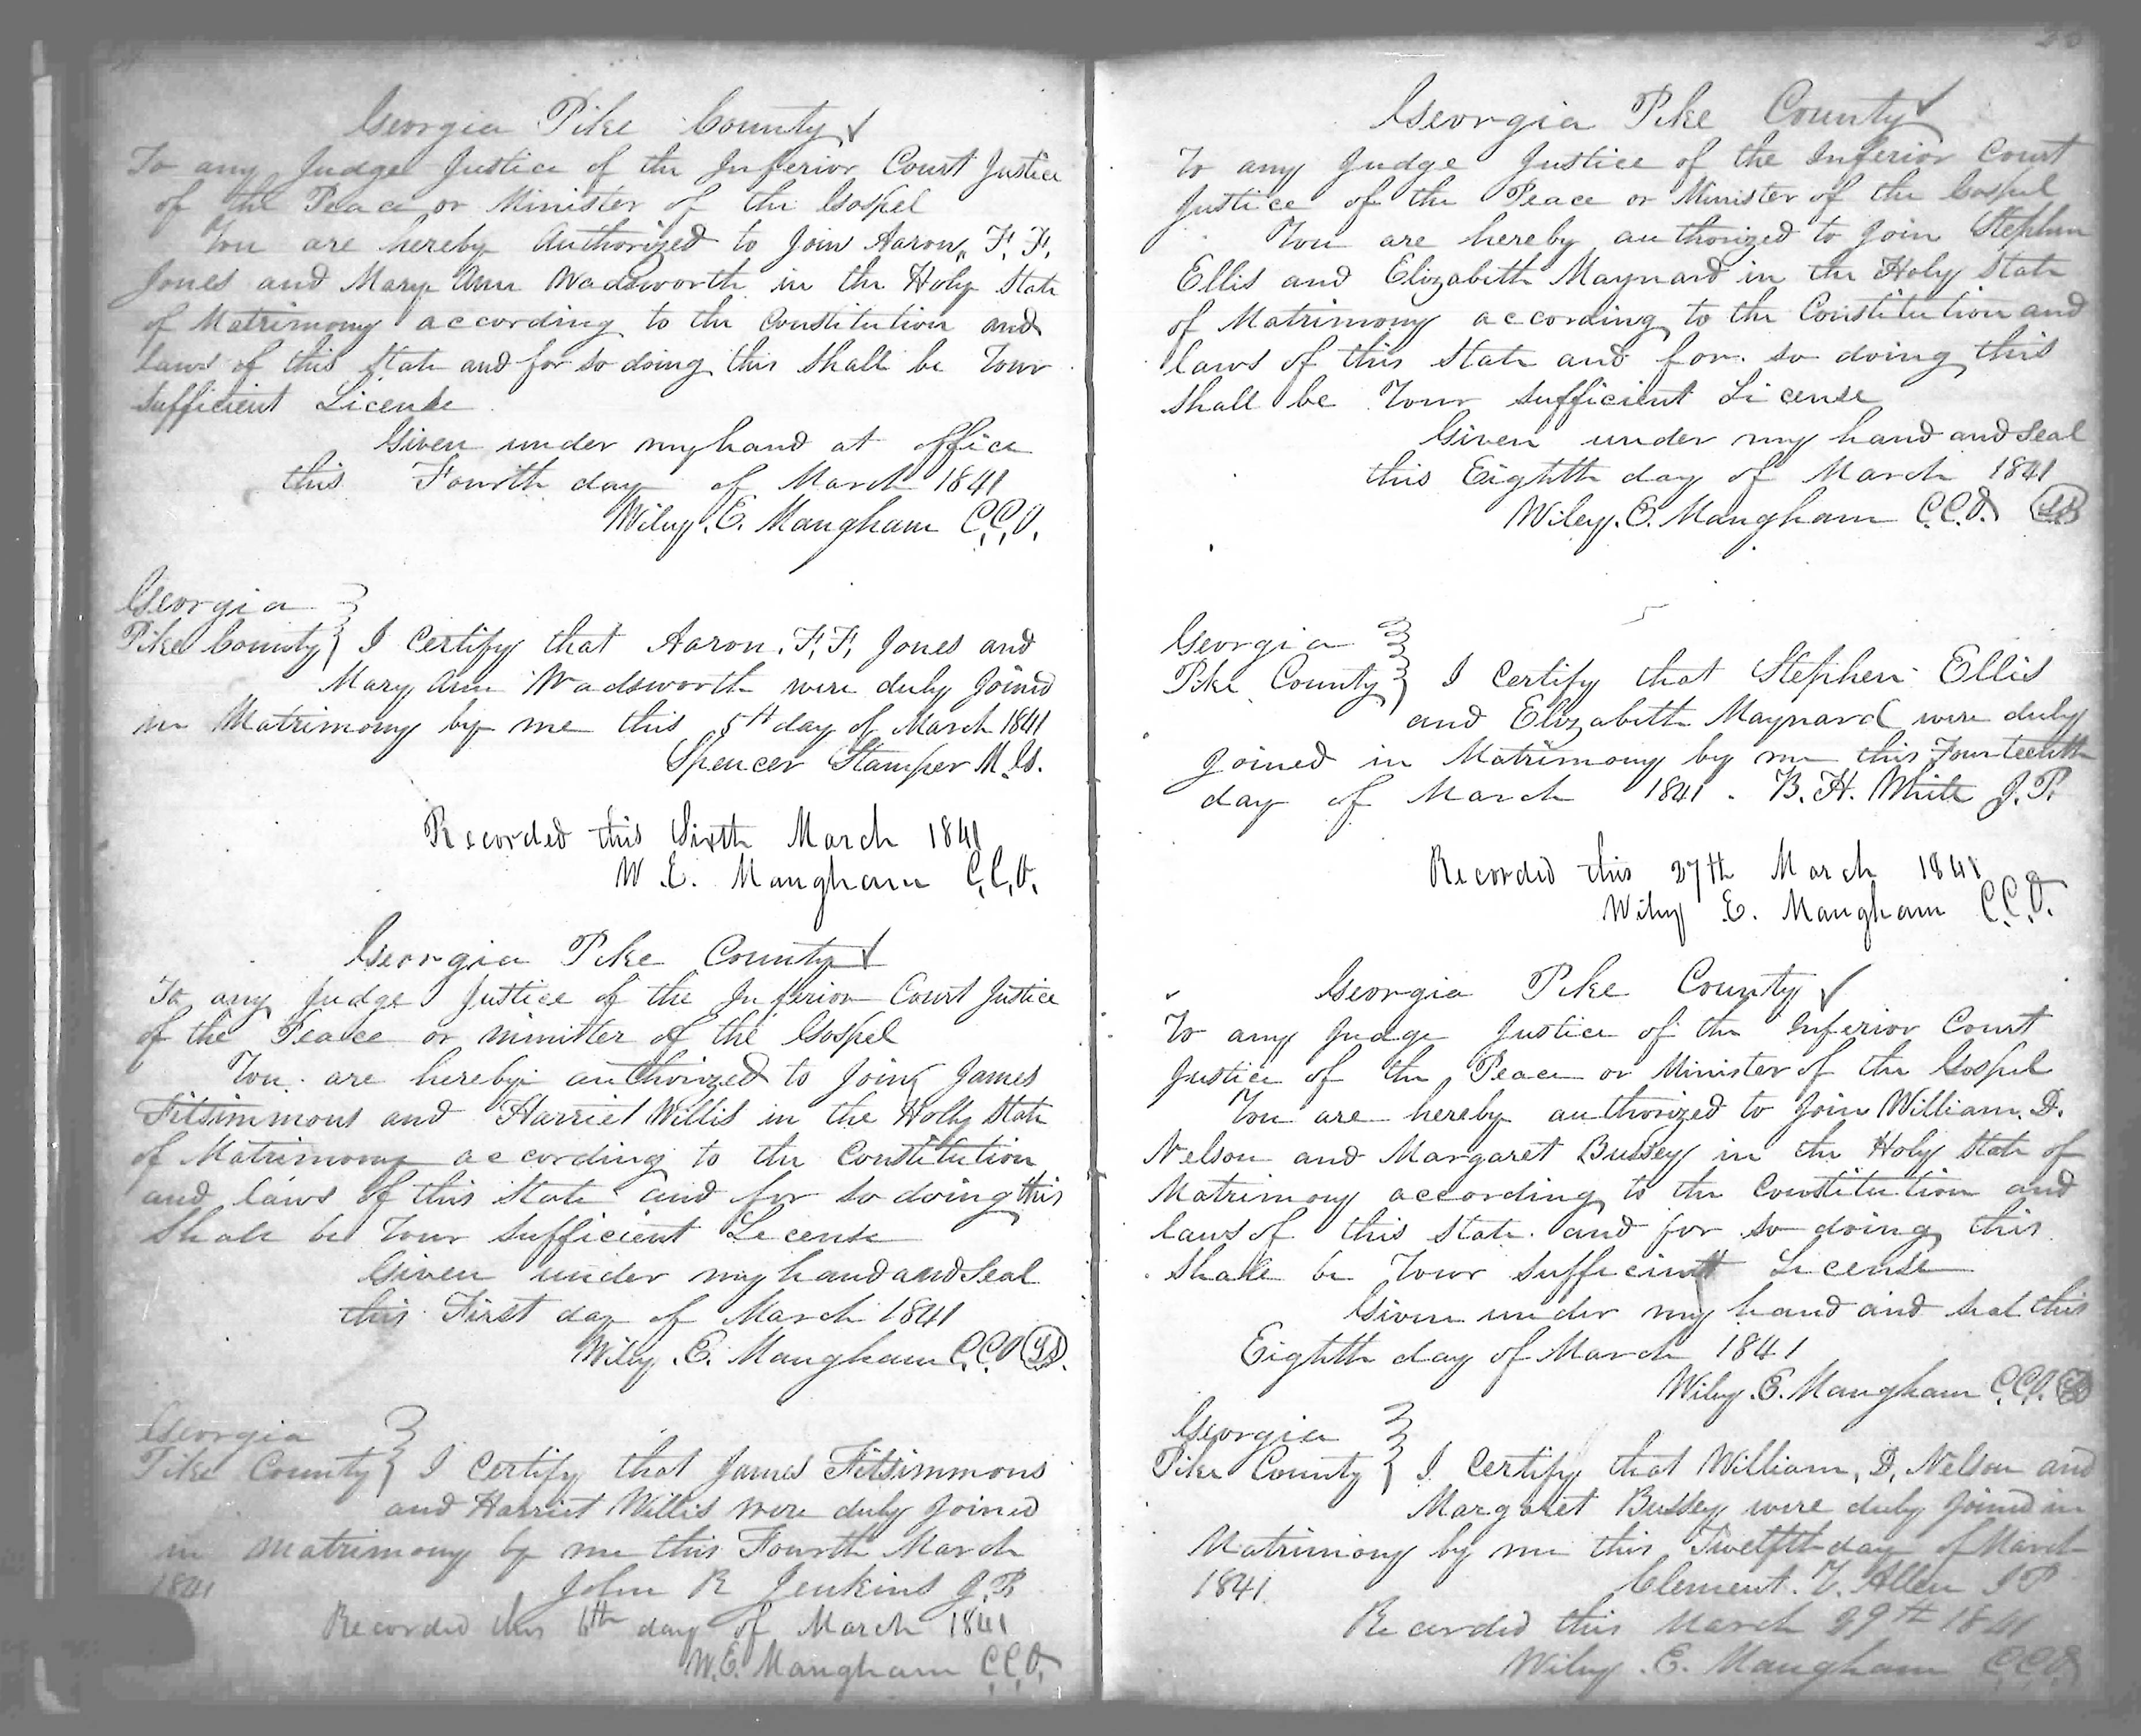 Georgia Pike County
To any Judge Justice of the Inferior Court Justice
of the Peace or Minister of the Gospel
You are hereby Authorized to Join Aaron, F. F.
Jones and Mary Ann Wadsworth in the Holy State
of Matrimony according to the Constitution and
laws of this State and for so doing this Shall be Your
Sufficient License
Given under my hand at office
this Fourth day of March 1841
Wiley. E. Mangham C.C.O.
Georgia
Pike County I Certify that Aaron. F. F. Jones and
Mary Ann Wadsworth were duly Joined
in Matrimony by me this 5th day of March 1841
Spencer Stamper M.G.
Recorded this Sixth March 1841
W. E. Mangham C.C.O.
Georgia Pike County
To any Judge Justice of the Inferior Court Justice
of the Peace or minister of the Gospel
You are hereby authorized to Join James
Fitsimmons and Harriet Willis in the Holy State
of Matrimony according to the Constitution
and laws of this State and for so doing this
Shall be Your Sufficient License
Given under my hand and Seal
this First day of March 1841
Wiley. E. Mangham C.C.O. L.S.
Georgia
Pike County I Certify that James Fitsimmons
and Harriet Willis were duly Joined
in matrimony by me this Fourth March
1841
John R Jenkins J.P.
Recorded this 6th day of March 1841
W. E. Mangham C.C.O.
Georgia Pike County
To any Judge Justice of the Inferior Court
Justice of the Peace or Minister of the Gospel
You are hereby authorized to Join Stephen
Ellis and Elizabeth Maynard in the Holy State
of Matrimony according to the Constitution and
laws of this State and for so doing this
Shall be Your Sufficient License
Given under my hand and Seal
this Eighth day of March 1841
Wiley. E. Mangham C.C.O. L.S.
Georgia
Pike County I Certify that Stephen Ellis
and Elizabeth Maynard were duly
Joined in Matrimony by me this Fourteenth
day of March 1841. B. H. White J.P.
Recorded this 27th March 1841
Wiley E. Mangham C.C.O.
Georgia Pike County
To any Judge Justice of the Inferior Court
Justice of the Peace or Minister of the Gospel
You are hereby authorized to Join William. D.
Nelson and Margaret Bussey in the Holy State of
Matrimony according to the Constitution and
laws of this State and for so doing this
Shall be Your Sufficient License
Given under my hand and seal this
Eighth day of March 1841
Wiley. E. Mangham C.C.O. L.S.
Georgia
Pike County I Certify that William, D, Nelson and
Margaret Bussey were duly Joined in
Matrimony by me this Twelfth day of March
1841. Clement. T. Allen J P
Recorded this March 29th 1841
Wiley. E. Mangham C.C.O.